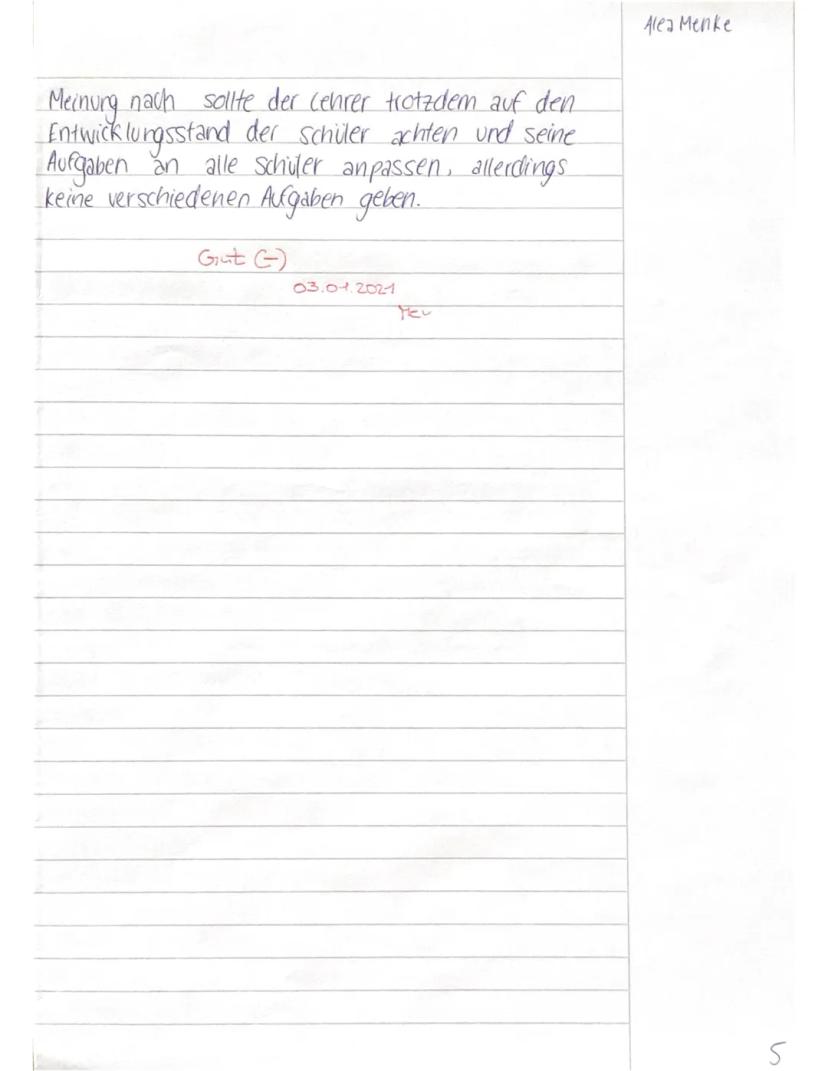 Alea Menke
Meinung nach sollte der Lehrer trotzdem auf den
Entwicklungsstand der Schüler achten und seine
Aufgaben an alle Schüler anpassen, allerdings
keine verschiedenen Aufgaben geben.
Gut (-)
03.01.2021
5